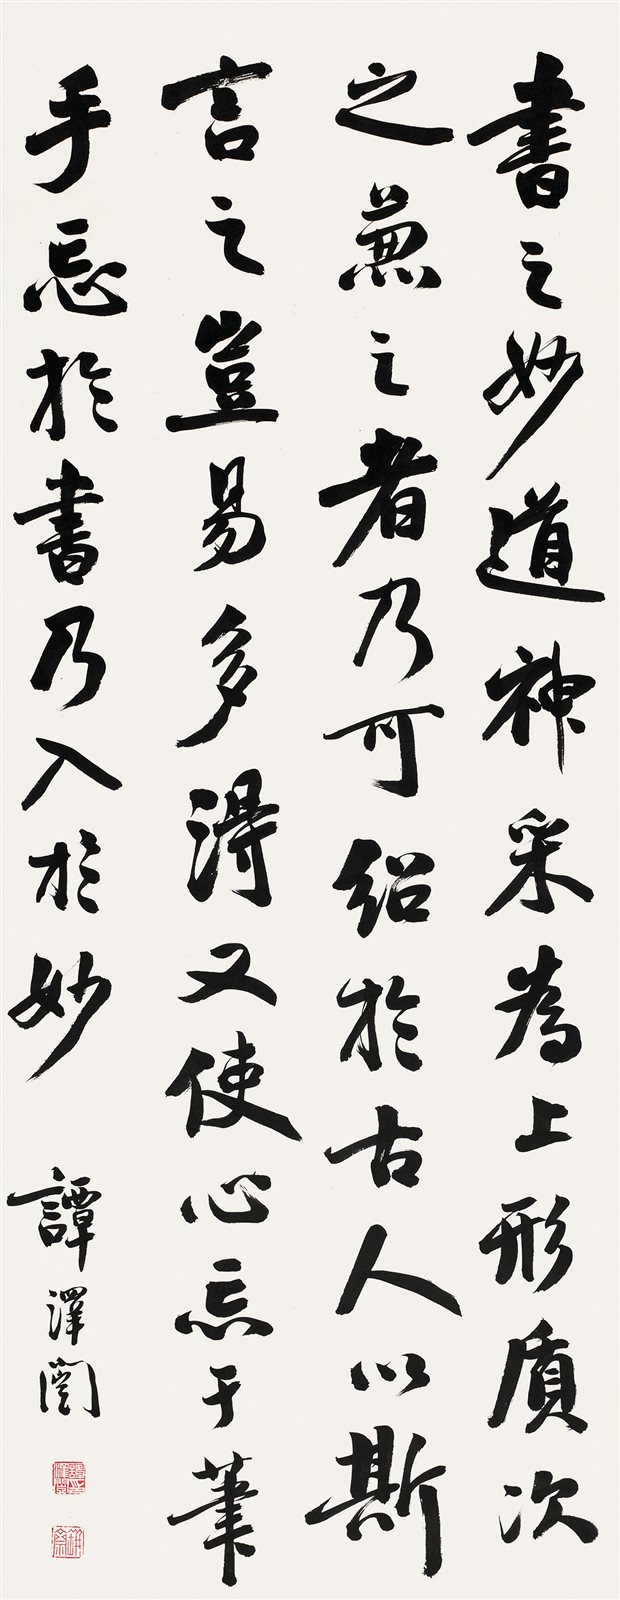 書之妙道神采為上形质次
之兼之者乃可绍於古人以斯
言之豈易多得又使心忘于筆
手忘於書乃入於妙
譚澤闓